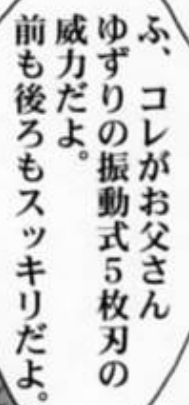 ふ、コレがお父さん
ゆずりの振動式5枚刃の
威力だよ。
前も後ろもスッキリだよ。